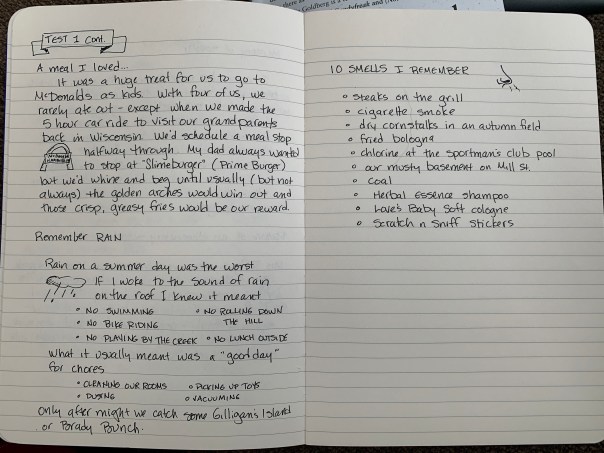 Goldberg is a
TEST 1 Cont.
A meal I loved...
It was a huge treat for us to go to
McDonalds as kids. With four of us, we
rarely ate out - except when we made the
5 hour car ride to visit our grandparents
back in Wisconsin. We'd schedule a meal stop
halfway through. My dad always wanted
to stop at "Slimeburger" (Prime Burger)
but we'd whine and beg until usually (but not
always) the golden arches would win out and
those crisp, greasy fries would be our reward.
Remember RAIN
Rain on a summer day was the worst
If I woke to the sound of rain
on the roof I knew it meant
• NO SWIMMING • NO ROLLING DOWN
• NO BIKE RIDING THE HILL
• NO PLAYING BY THE CREEK • NO LUNCH OUTSIDE
What it usually meant was a "good day"
for chores
• CLEANING OUR ROOMS • PICKING UP TOYS
• DUSING • VACUUMING
Only after might we catch some Gilligan's Island
or Brady Bunch.
10 SMELLS I REMEMBER
• steaks on the grill
• cigarette smoke
• dry cornstalks in an autumn field
• fried bologna
• chlorine at the sportman's club pool
• our musty basement on Mill St.
• Coal
• Herbal Essence shampoo
• Love's Baby Soft cologne
• Scratch n Sniff Stickers